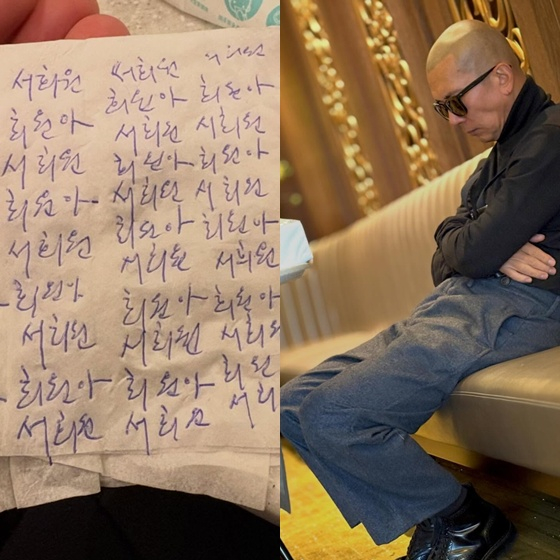 서희원 서희원
희원아 희원아
서희원 서희원 서희원
희원아 희원아 희원아
서희원 서희원 서희원
희원아 희원아 희원아
서희원 서희원 서희원
희원아 희원아 희원아
서희원 서희원 서희원
희원아 희원아 희원
서희원 서희원 서희